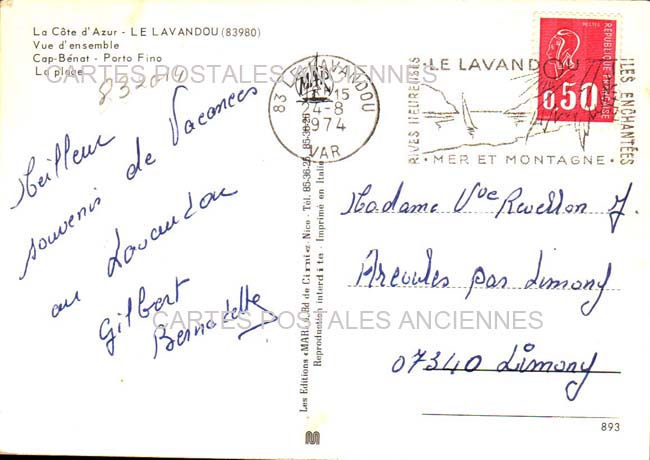 La Côte d'Azur - LE LAVANDOU (83980)
Vue d'ensemble
Cap-Bénat - Porto Fino
La plage
CARTES POSTALES ANCIENNES
83
Meilleur
souvenir de Vacances
au Lavandou
Gilbert
Bernadette
CARTES POSTALES ANCIENNES
83 LE LAVANDOU
24-8
1974
VAR
RIVES HEUREUSES
• LE LAVANDOU
ILES ENCHANTÉES
• MER ET MONTAGNE •
POSTES
REPUBLIQUE FRANÇAISE
0,50
Les Editions «MAR» Bd de Nice - Tél. 85-36-25, 85-36-26
Reproduction interdite - Imprimé en Italie
Madame Vve J.
par Limony
07340 Limony
893